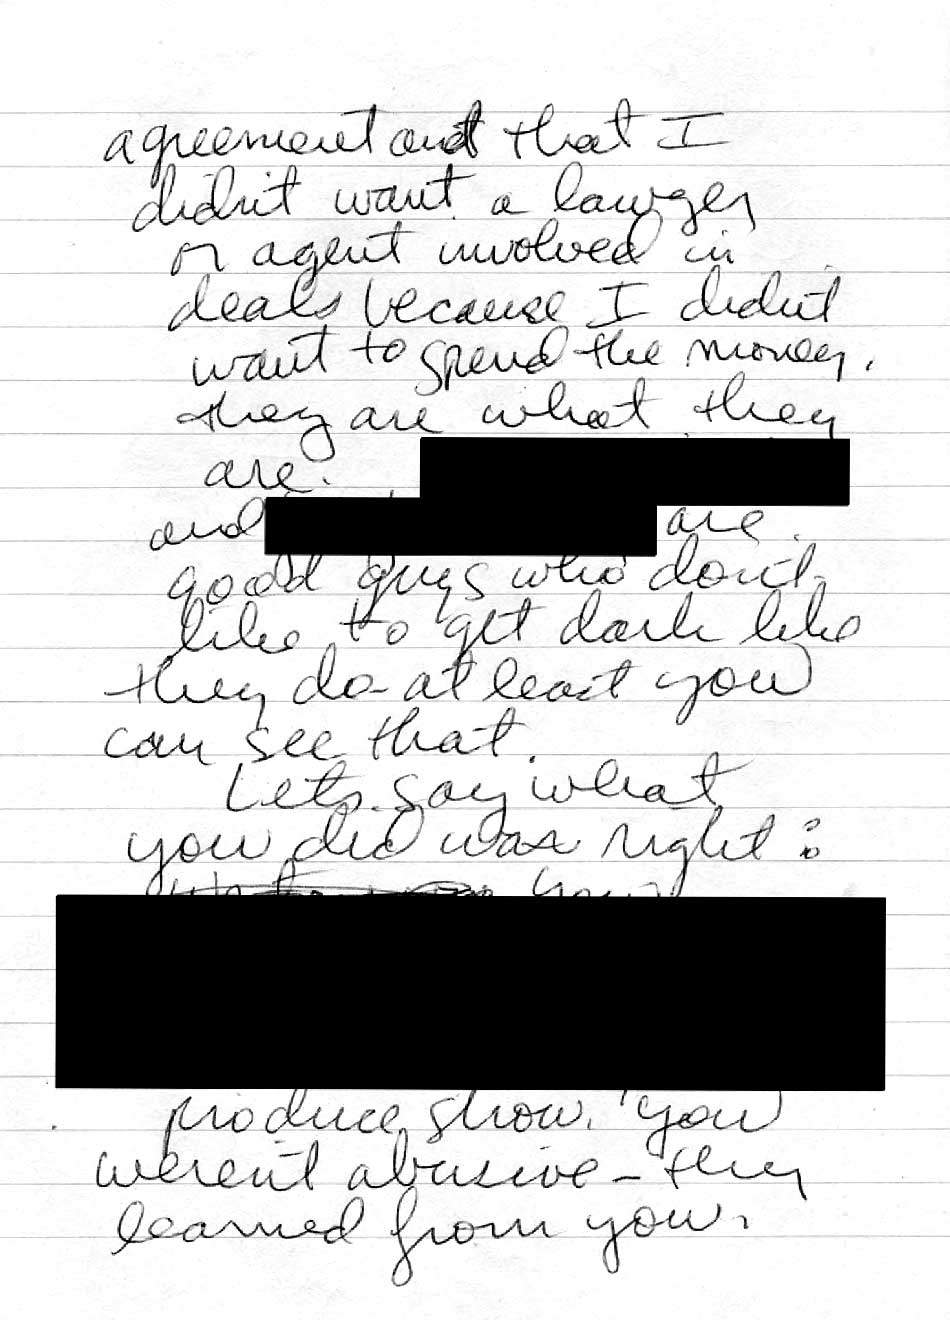 agreement and that I
didn't want a lawyer
or agent involved in
deals because I didn't
want to spend the money.
they are what they
are.
and are
good guys who don't
like to get dark like
they do - at least you
can see that.
Lets say what
you did was right:
your
produce show. You
weren't abusive - they
learned from you.